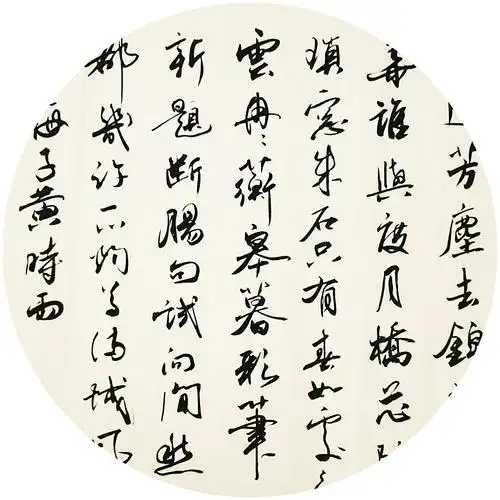 芳塵去錦
華誰與度月橋花
瑣窓朱户只有春知處
雲冉〻蘅皋暮彩筆
新題斷腸句試问閒愁
都幾许一川烟草满城风
梅子黄時雨